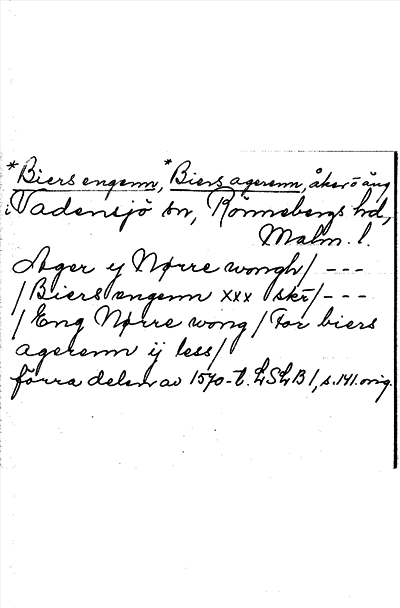 *Biers engenn, *Biers agerenn, åker o äng
i Vadensjö sn, Rönnebergs hd,
Malm. l.
Ager y Nørre wongh/ ---
/Biers engenn xxx skr/---
/Eng Nørre wong/ For biers
agerenn ij less/
förra delen av 1570-t. LSLB 1, s. 141. orig.